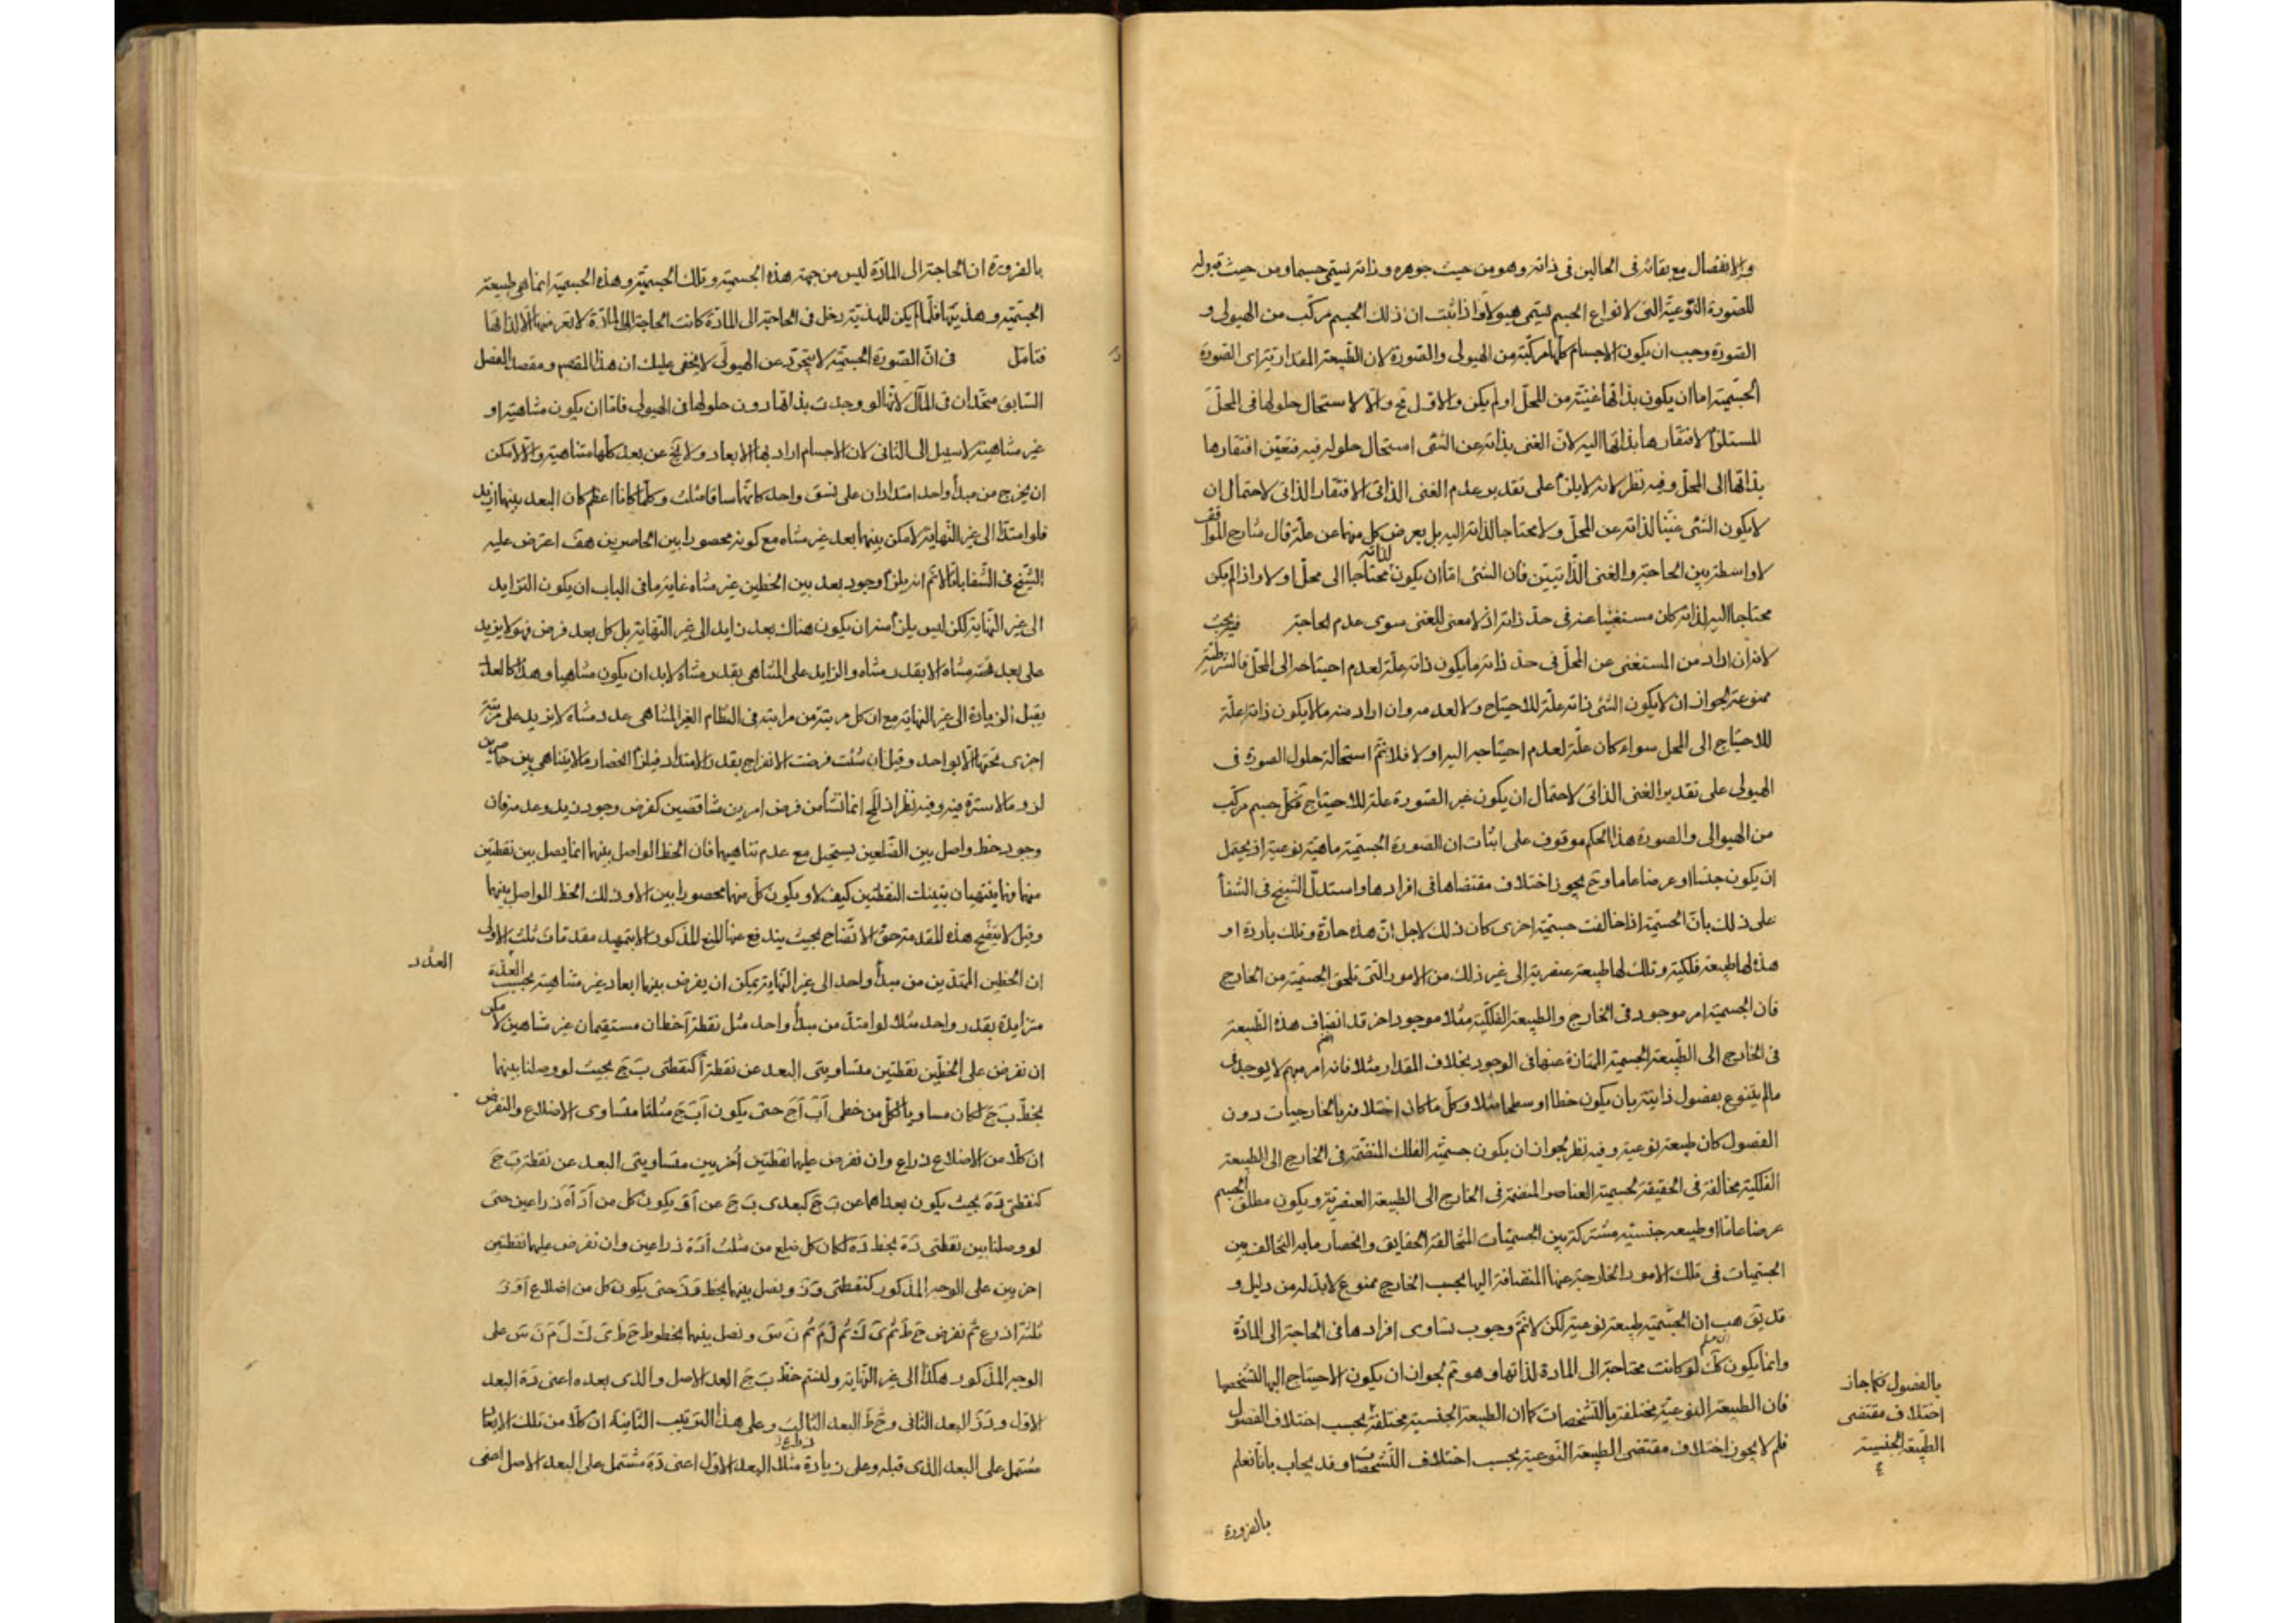 والانفصال مع بقائه فى الحالين فى ذاته وهو من حيث جوهره وذاته يسمّى جسما ومن حيث قبوله
للصورة النوعيّة التى لانواع الجسم يسمّى هيولا واذا ثبت ان ذلك الجسم مركّب من الهيولى و
الصورة وجب ان يكون الاجسام كلّها مركّبة من الهيولى والصورة لان الطبيعة المقدارية اى الصورة
الجسميّة اما ان يكون بذاتها غنيّة من المحلّ او لم يكن والاوّل مح والّا لاستحال حلولها فى المحلّ
المستلزم لافتقارها بذاتها اليه لانّ الغنى بذاته عن الشئ استحال حلوله فيه فتعيّن افتقارها
بذاتها الى المحلّ وفيه نظر لانه لا يلزم على تقدير عدم الغنى الذاتى الافتقار الذاتى لاحتمال ان
لا يكون الشئ غنيّا لذاته عن المحلّ ولا محتاجا لذاته اليه بل يعرض كل منهما عن علّة قال شارح المواقف
لا واسطة بين الحاجة والغنى الذّاتيّين فان الشئ امّا ان يكون لذاته محتاجا الى محلّ او لا واذا لم يكن
محتاجا اليه لذاته كان مستغنيا عنه فى حدّ ذاته اذ لا معنى للغنى سوى عدم الحاجة فيه بحث
لانه ان اراد من المستغنى عن المحلّ فى حدّ ذاته ما يكون ذاته علّة لعدم احتياجه الى المحلّ فالشرطيّة
ممنوعة لجواز ان لا يكون الشئ ذاته علّة للاحتياج ولا لعدمه وان اراد منه ما لا يكون ذاته علّة
للاحتياج الى المحل سواء كان علّة لعدم احتياجه اليه او لا فلا نمّ استحالة حلول الصورة فى
الهيولى على تقدير الغنى الذاتى لاحتمال ان يكون غير الصورة علة للاحتياج فكلّ جسم مركّب
من الهيولى والصورة هذا الحكم موقوف على اثبات ان الصورة الجسميّة ماهيّة نوعية اذ يحتمل
ان يكون جنسا او عرضا عاما وح يجوز اختلاف مقتضاها فى افرادها واستدلّ الشيخ فى الشفا
على ذلك بأنّ الجسميّة اذا خالفت جسميّة اخرى كان ذلك لاجل انّ هذه حارّة وتلك باردة او
هذه لها طبيعة فلكية وتلك لها طبيعة عنصرية الى غير ذلك من الامور التى تلحق الجسميّة من الخارج
فان الجسمية امر موجود فى الخارج والطبيعة الفلكيّة مثلا موجود اخر قد انضاف هذه الطبيعة
فى الخارج الى الطّبيعة الجسمية الممتازة عنها فى الوجود بخلاف المقدار مثلا فانه امر مبهم لا يوجد فى
مالم يتنوع بفصول ذاتية بان يكون خطا او سطحا مثلا وكلّ ما كان اختلافه بالخارجيات دون
الفصول كان طبيعة نوعية وفيه نظر لجواز ان يكون جسميّة الفلك المنضمّة فى الخارج الى الطبيعة
الفلكية مخالفة فى الحقيقة لجسمية العناصر المنضمة فى الخارج الى الطبيعة العنصريّة ويكون مطلق الجسم
عرضا عامّا او طبيعه جنسيّة مشتركة بين الجسميّات المتخالفة الحقايق وانحصار ما به التخالف بين
الجسميات فى تلك الامور الخارجة عنها المنضافة اليها بحسب الخارج ممنوع لا بدّ له من دليل و
قد يقّ هب ان الجسّمية طبيعة نوعية لكن لا نمّ وجوب تساوى افرادها فى الحاجة الى المادّة
وانما يكون كك لو كانت محتاجة الى المادة لذاتها وهو مم لجواز ان يكون الاحتياج اليها لتشخصها
فان الطبيعة النوعيّة مختلفة بالتشخصات كما ان الطبيعة الجنسية مختلفة بحسب اختلاف الفصول
فلم لا يجوز اختلاف مقتضى الطبيعة النّوعية بحسب اختلاف التّشخّصات وقد يجاب بانّا نعلم
بالفصول فكما جاز
اختلاف مقتضى
الطّبيعة الجنسيّة
بالضرورة
بالضرورة ان الحاجة الى المادّة ليس من جهة هذه الجسميّة وتلك الجسميّة وهذه الجسميّة انما هى طبيعة
الجسميّة وهذيتها فلمّا لم يكن للهذية دخل فى الحاجة الى المادّة كانت الحاجة الى المادّة لا تعرضها الّا لذاتها
فتامّل فى انّ الصّورة الجسميّة لا تتجرّد عن الهيولى لا يخفى عليك ان هذا المقصد ومقصد الفصل
السّابق متّحدان فى المآل لانّها لو وجدت بذاتها دون حلولها فى الهيولى فامّا ان يكون متناهية او
غير متناهية لا سبيل الى الثانى لان الاجسام اراد بها الابعاد ولا يخ عن بعد كلّها متناهية والّا لامكن
ان يخرج من مبدأ واحد امتدادان على نسق واحد كانّهما ساقا مثلث وكلّما كانا اعظم كان البعد بينهما ازيد
فلو امتدّا الى غير النّهاية لامكن بينهما بعد غير متناه مع كونه محصورا بين الحاصرين هف اعترض عليه
الشّيخ فى الشّفا بانّا لا نمّ انه يلزم وجود بعد بين الخطين غير متناه غاية ما فى الباب ان يكون التزايد
الى غير النّهاية لكن ليس يلزم منه ان يكون هناك بعد زايد الى غير النّهاية بل كل بعد فرض فهو لا يزيد
على بعد تحته متناه الا بقدر متناه والزايد على المتناهى بقدر متناه لا بد ان يكون متناهيا وهذا كالعدد
يقبل الزيادة الى غير النهاية مع ان كل مرتبة من مراتبه فى النّظام الغير المتناهى عدد متناه لا يزيد على مرتبة
اخرى تحتها الّا بواحد وقيل ان شئت فرضت الانفراج بقدر الامتداد فيلزم انحصار ما لا يتناهى بين حاصرين
لزوما لا سترة فيه وفيه نظر اذ المح انما نشأ من فرض امرين متناقضين كفرض وجود زيد وعدمه فان
وجود خط واصل بين الضّلعين يستحيل مع عدم تناهيهما فان الخط الواصل بينهما انما يصل بين نقطتين
منهما فهما ينتهيان بتينك النقطتين كيف لا ويكون كلّ منهما محصورا بين الاو ذلك الخط الواصل بينهما
وقيل لا يتضح هذه المقدمة حقّ الاتّضاح بحيث يندفع عنها المنع المذكور الا بتمهيد مقدمات ثلث الاولى
ان الخطين الممتدّين من مبدأ واحد الى غير النّهاية يمكن ان يفرض بينهما ابعاد غير متناهية بحسب العدة
العدد
متزايدة بقدر واحد مثلا لو امتدّ من مبدأ واحد مثل نقطة آ خطان مستقيمان غير متناهيين لامكن
ان نفرض على الخطّين نقطتين متساويتى البعد عن نقطة آ كنقطتى بَ جَ بحيث لو وصلنا بينهما
بخطّ بَ جَ لكان مساويا لكلّ من خطى آبَ آجَ حتى يكون آبَ جَ مثلثا متساوى الاضلاع ولنفرض
ان كلّا من الاضلاع ذراع وان نفرض عليهما نقطتين اُخريين متساويتى البعد عن نقطة بَ جَ
كنقطتى دَ هَ بحيث يكون بعداهما عن بَ جَ كبعدى بَ جَ عن آ ويكون كل من آدَ آهَ ذراعين حتىّ
لو وصلنا بين نقطتى دَ هَ بخط دَ هَ لكان كل ضلع من مثلث آدَ هَ ذراعين وان نفرض عليهما نقطتين
اخريين على الوجه المذكور كنقطتى وَ زَ ونصل بينهما بخط وَ زَ حتى يكون كل من اضلاع آ وَ زَ
ثلثة اذرع ثم نفرض حَ طَ ثم ىَ كَ ثم لَ مَ ثم نَ سَ ونصل بينهما بخطوط حَ طَ ىَ كَ لَ مَ نَ سَ على
الوجه المذكور هكذا الى غير النّهاية ولنسم خطّ بَ جَ البعد الاصل والذى بعده اعنى دَ هَ البعد
الاول و وَ زَ البعد الثّانى و حَ طَ البعد الثّالث وعلى هذا الترتيب الثّانية ان كلّا من تلك الابعاد
مشتمل على البعد الذى قبله وعلى زيادة ذراع مثلا البعد الاوّل اعنى دَ هَ مشتمل على البعد الاصل اعنى